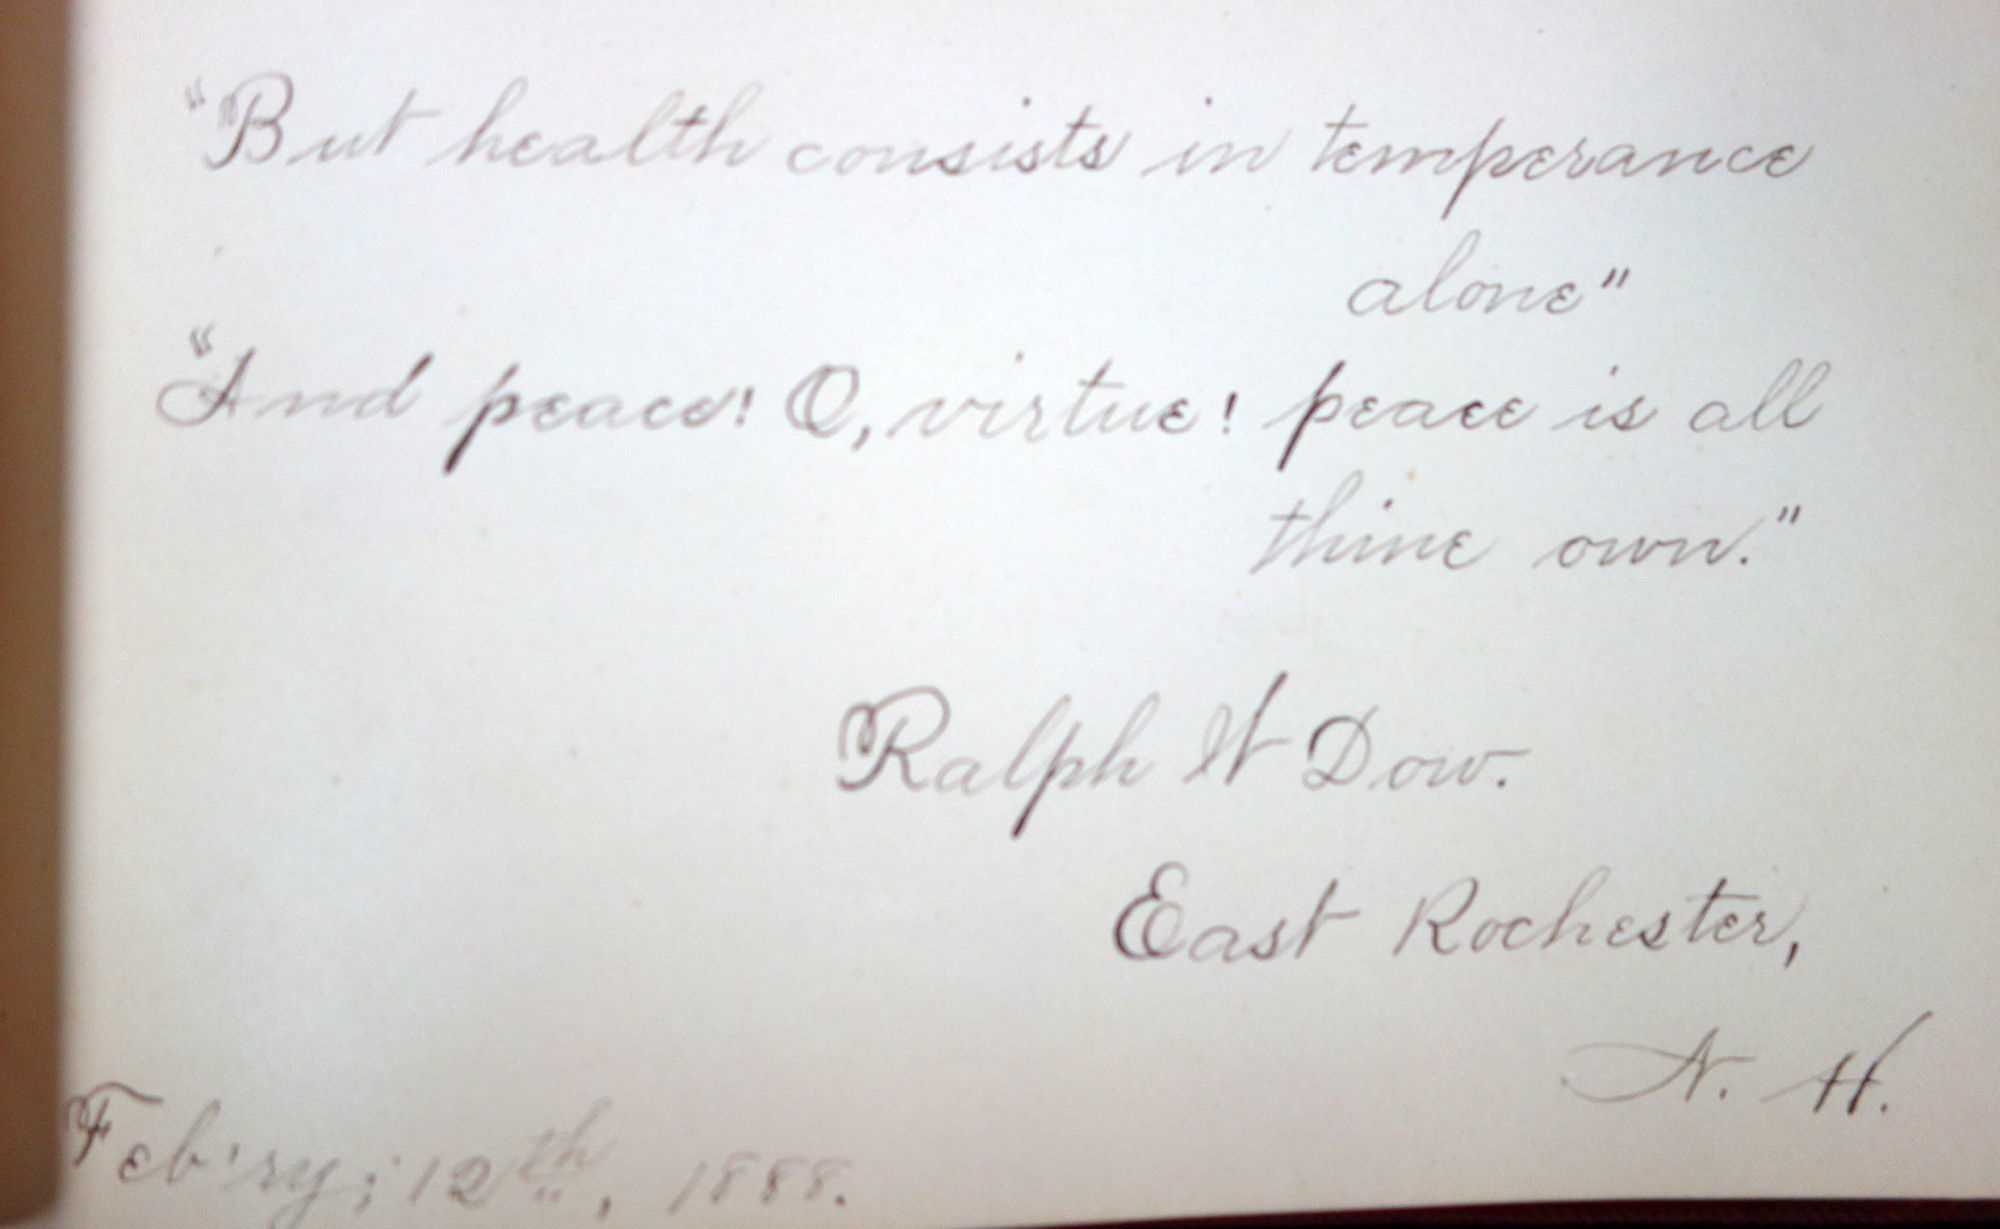 "But health consists in temperance
alone"
"And peace! O, virtue! peace is all
thine own."
Ralph W Dow.
East Rochester,
N. H.
Feb'ry; 12th, 1888.